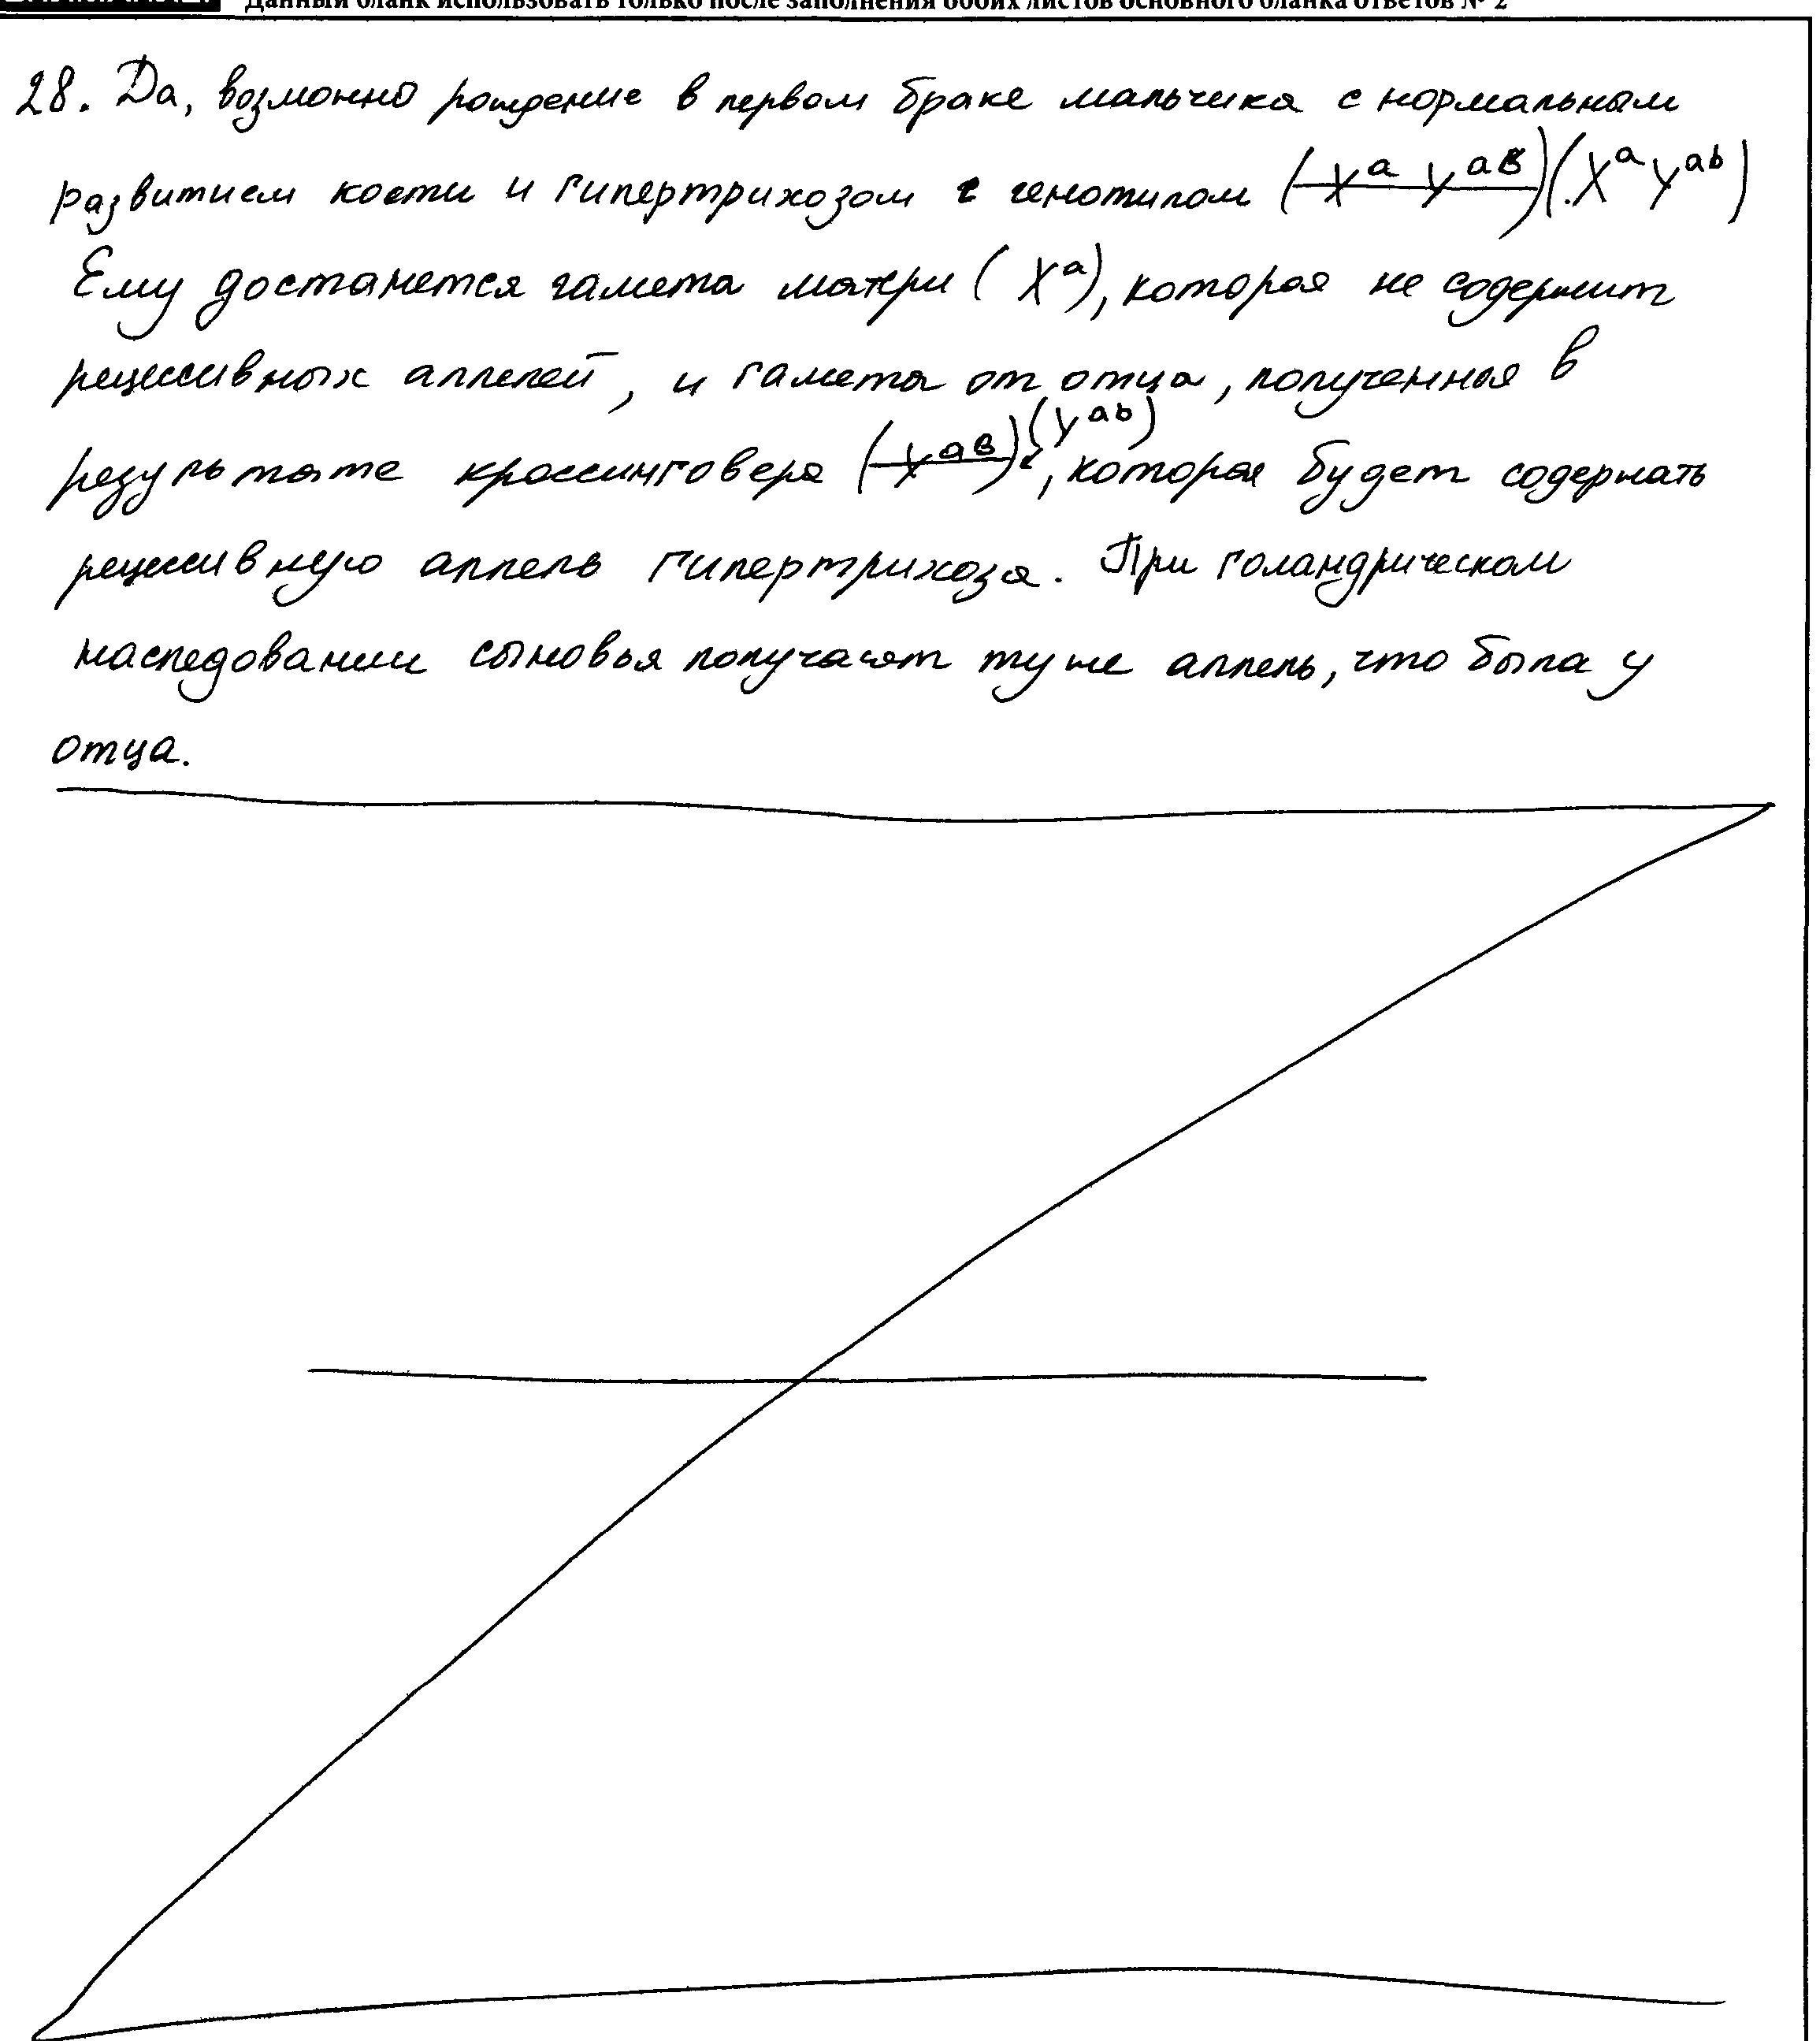 Данный бланк использовать только после заполнения обоих листов основного бланка ответов № 2
28. Да, возможно рождение в первом браке мальчика с нормальным
развитием кости и гипертрихозом с генотипом (X^a Y^aB)(X^a Y^ab)
Ему достанется гамета матери (X^a), которая не содержит
рецессивных аллелей, и гамета от отца, полученная в
результате кроссинговера (X^aB)(Y^ab), которая будет содержать
рецессивную аллель гипертрихоза. При голандрическом
наследовании сыновья получают ту же аллель, что была у
отца.